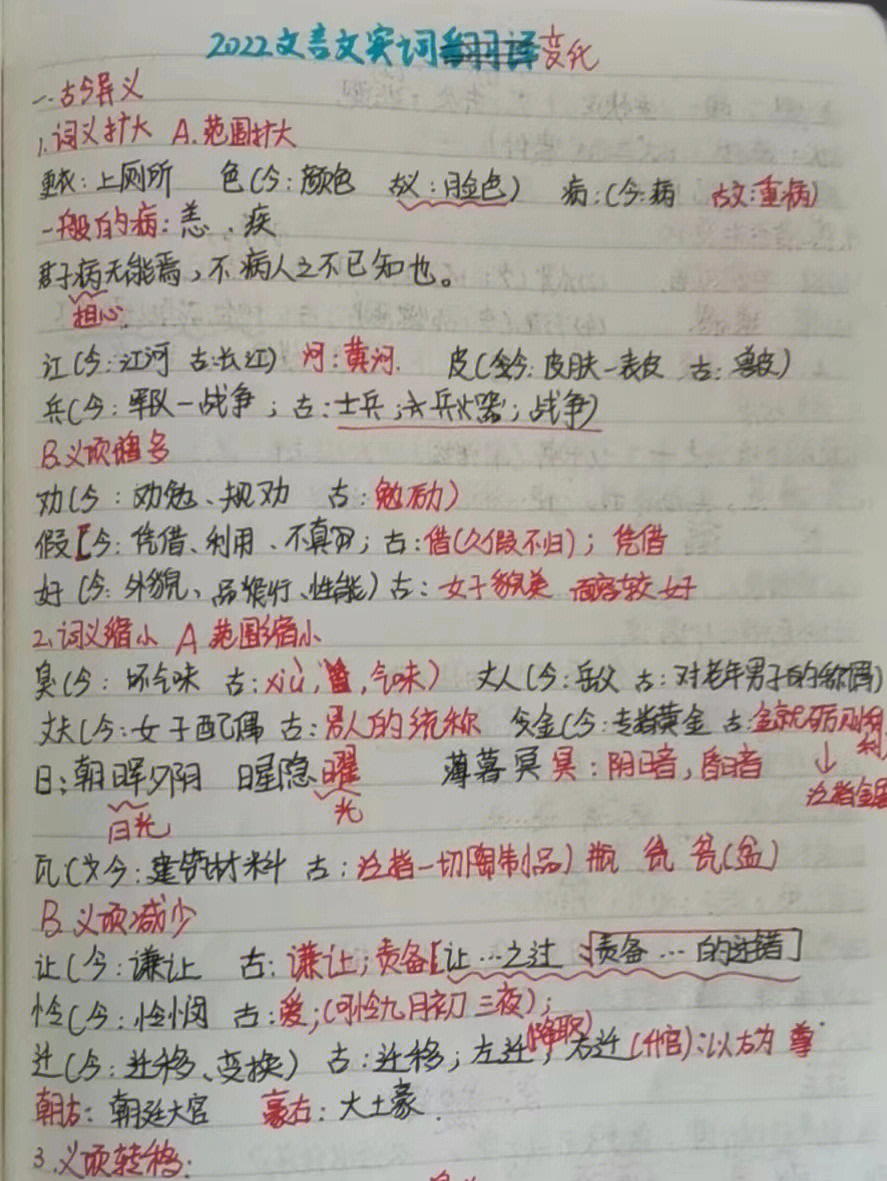 2022文言文实词变化
一.古今异义
1.词义扩大 A.范围扩大
更衣:上厕所 色(今:颜色 古义:脸色) 病:(今:病 古文:重病)
一般的病:恙、疾
君子病无能焉,不病人之不已知也。
担心.
江(今:江河 古:长江) 河:黄河. 皮(今:皮肤一表皮 古:兽皮)
兵(今:军队一战争;古:士兵;兵器;战争)
B.义项增多
劝(今:劝勉、规劝 古:勉励)
假[今:凭借、利用、不真实;古:借(久假不归);凭借
好(今:外貌、品行、性能)古:女子貌美 容较好
2.词义缩小 A 范围缩小
臭(今:坏气味 古:xiù,气味) 丈人(今:岳父 古:对老年男子的称谓)
丈夫(今:女子配偶 古:男人的统称 金(今:专指黄金 古:金就砺则利
日:朝晖夕阴 日星隐曜 薄暮冥冥:阴暗,昏暗 ↓
日光 光 泛指金属
瓦(今:建筑材料 古:泛指一切陶制品)瓶 瓮 瓷(盆)
B.义项减少
让(今:谦让 古:谦让;责备[让…之过 责备…的过错]
怜(今:怜悯 古:爱;(可怜九月初三夜);
迁(今:迁移、变换) 古:迁移;左迁(降职),右迁(升官):以右为尊
朝右:朝廷大官 豪右:大土豪.
3.义项转移: